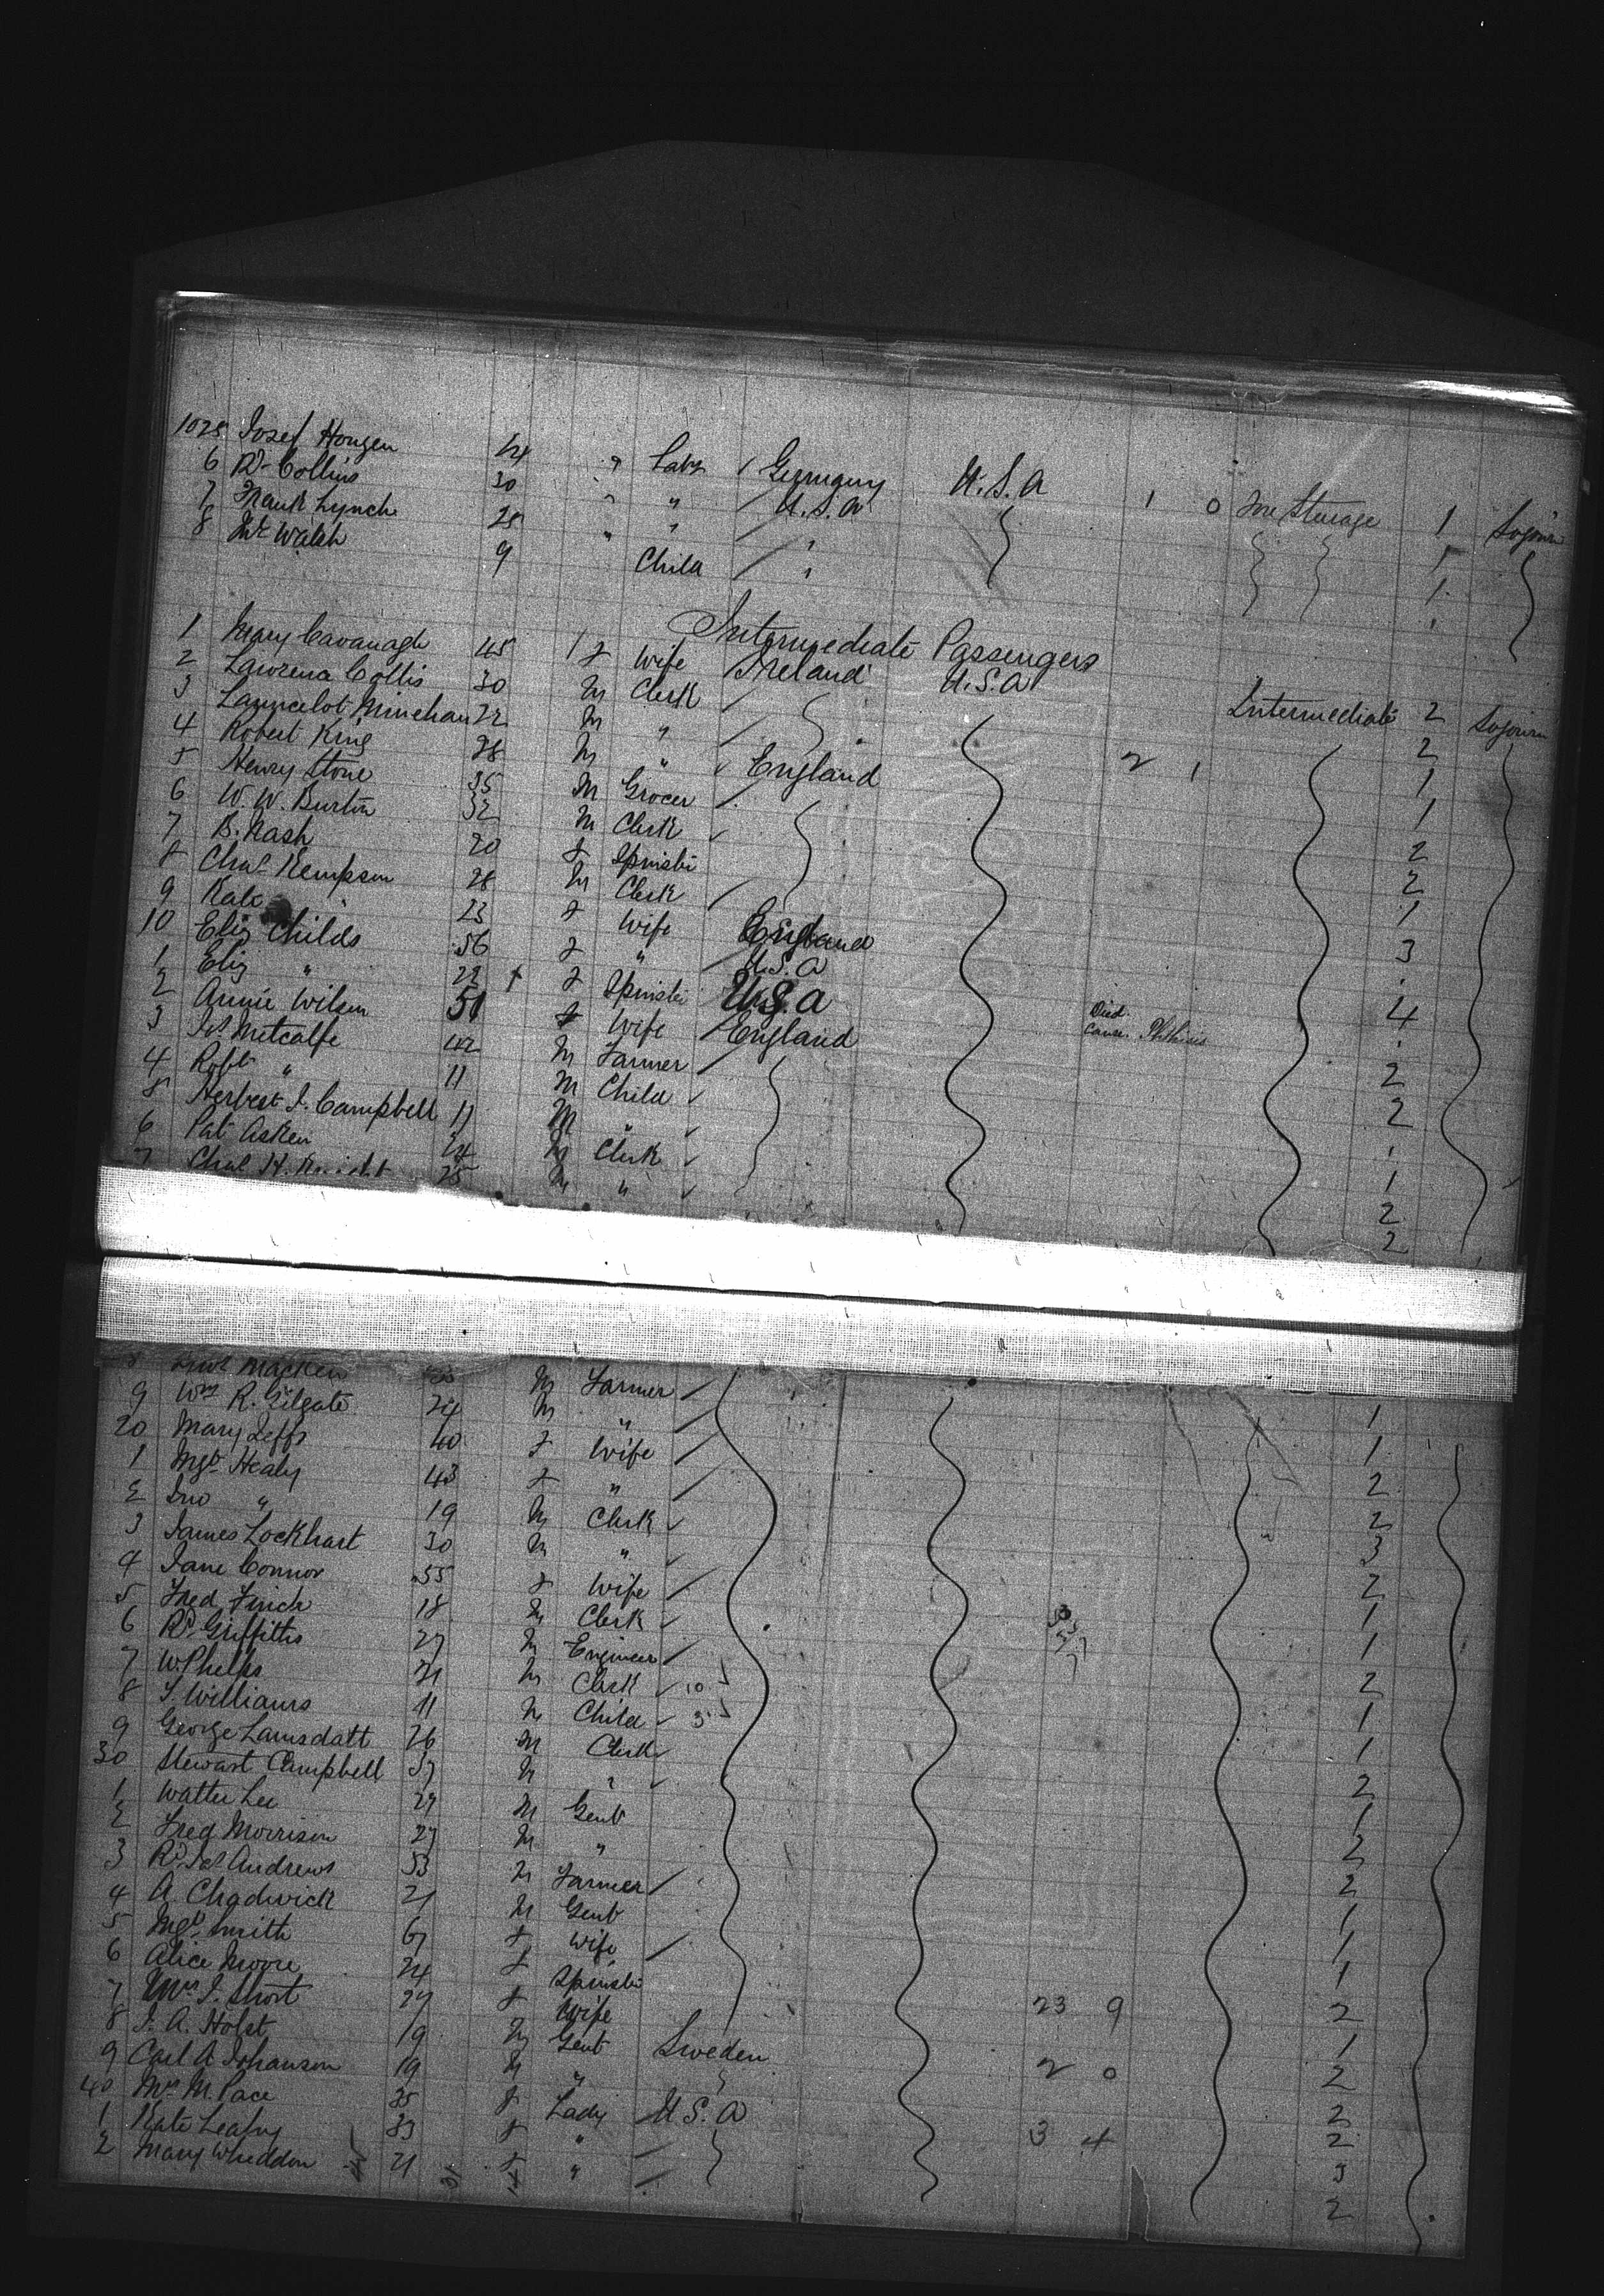 1025 Josef Hougen 24 " Labr Germany U.S.A 1 0 Steerage 1 Sojourn
6 Rd Collins 30 " " U.S.A 1
7 Frank Lynch 25 " " " 1
8 Walsh 9 " Child " "
Intermediate Passengers
1 Mary Cavanagh 45 f Wife Ireland U.S.A Intermediate 2 Sojourn
2 Collis 30 M Clerk 2
3 Launcelot Minehan 22 M " 1
4 Robert King 28 M " England 2 1 1
5 Henry Stone 35 M Grocer 2
6 W. W. Burton 32 M Clerk 2
7 B. Nash 20 f Spinster 1
8 Chas Kempson 28 M Clerk 3
9 Kate 23 f Wife England
10 Eliz Childs 56 f " U.S.A 4
1 Eliz " 22 + f Spinster U.S.A Died. Cause. Phthisis
2 Annie Wilson 51 f Wife England 2
3 Jas Metcalfe 42 M Farmer 2
4 Robt " 11 M Child
5 Herbert J. Campbell 11 M " 1
6 Pat Asken 24 M Clerk 2
7 Chas H. 25 M " 2
8 Macken M Farmer 1
9 Wm R. Gilgate 24 M " 1
20 Mary Jeffs 40 f Wife 2
1 Mgt Healy 43 f " 2
2 Jno " 19 M Clerk 3
3 James Lockhart 30 M " 2
4 Jane Connor 55 f Wife 1
5 Fred Finch 18 M Clerk 1
6 Rd Griffiths 27 M Engineer 2
7 W. Phelps 21 M Clerk 10 1
8 J. Williams 11 M Child 3 1
9 George Lamsdatt 26 M Clerk 2
30 Stewart Campbell 37 M " 1
1 Walter Lee 29 M Gent 2
2 Fred Morrison 27 M " 2
3 Rd Jas Andrews 53 M Farmer 1
4 A. Chadwick 21 M Gent 1
5 Mgt Smith 67 f Wife 1
6 Alice Moore 24 f Spinster 2
7 Mrs J. Short 27 f Wife 23 9 1
8 J. A. Holst 19 M Gent Sweden 2
9 Carl A Johanson 19 M " 2 0 2
40 Mrs M. Pace 35 f Lady U.S.A 2
1 Kate Leahy 33 f " 3 4 3
2 Mary Wheddon 21 f " 2